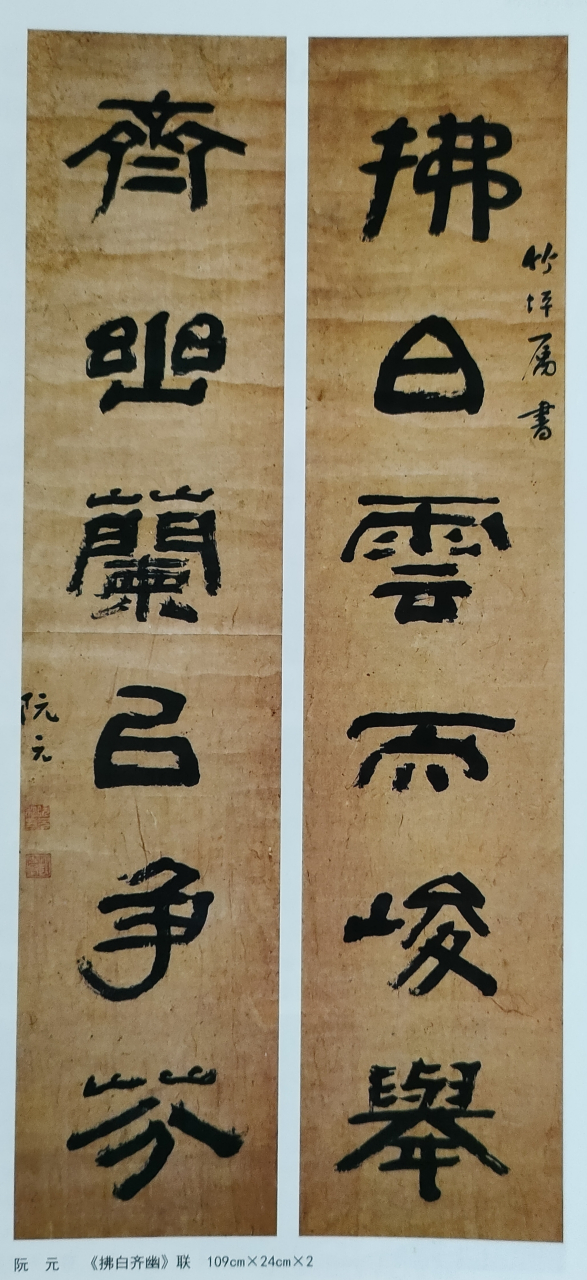 拂白雲而峻舉
竹坪屬書
齊幽蘭㠯争芬
阮元
阮 元 《拂白齐幽》联 109cm×24cm×2